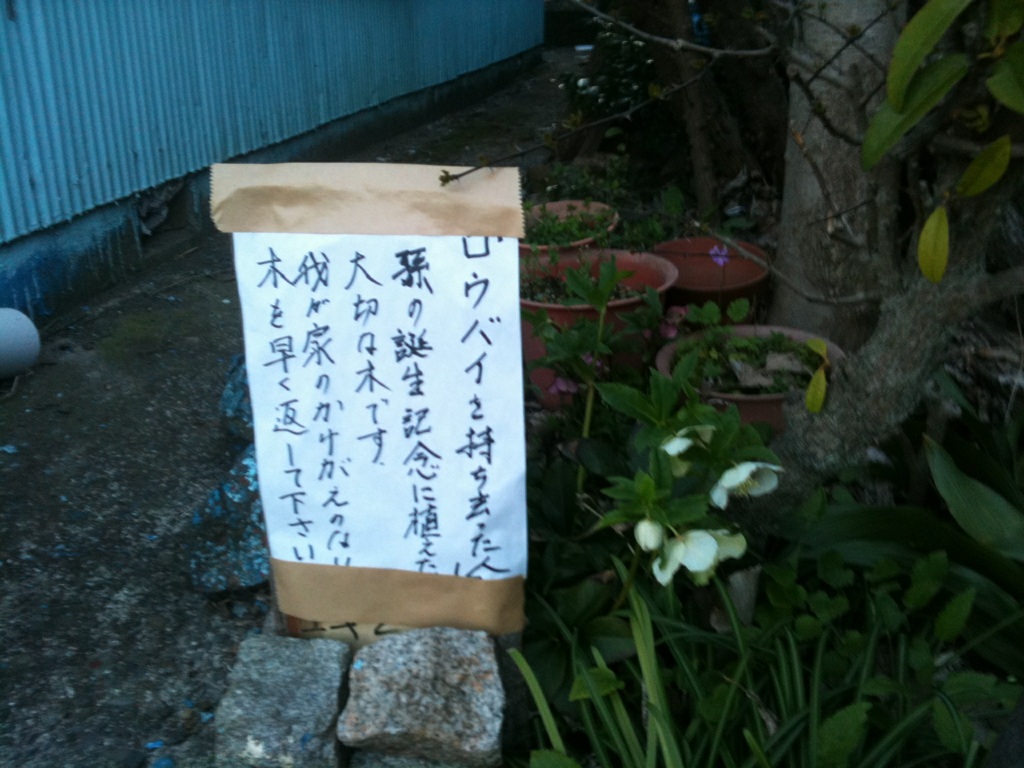 ロウバイを持ち去った人へ
孫の誕生記念に植えた
大切な木です。
我が家のかけがえのない
木を早く返して下さい